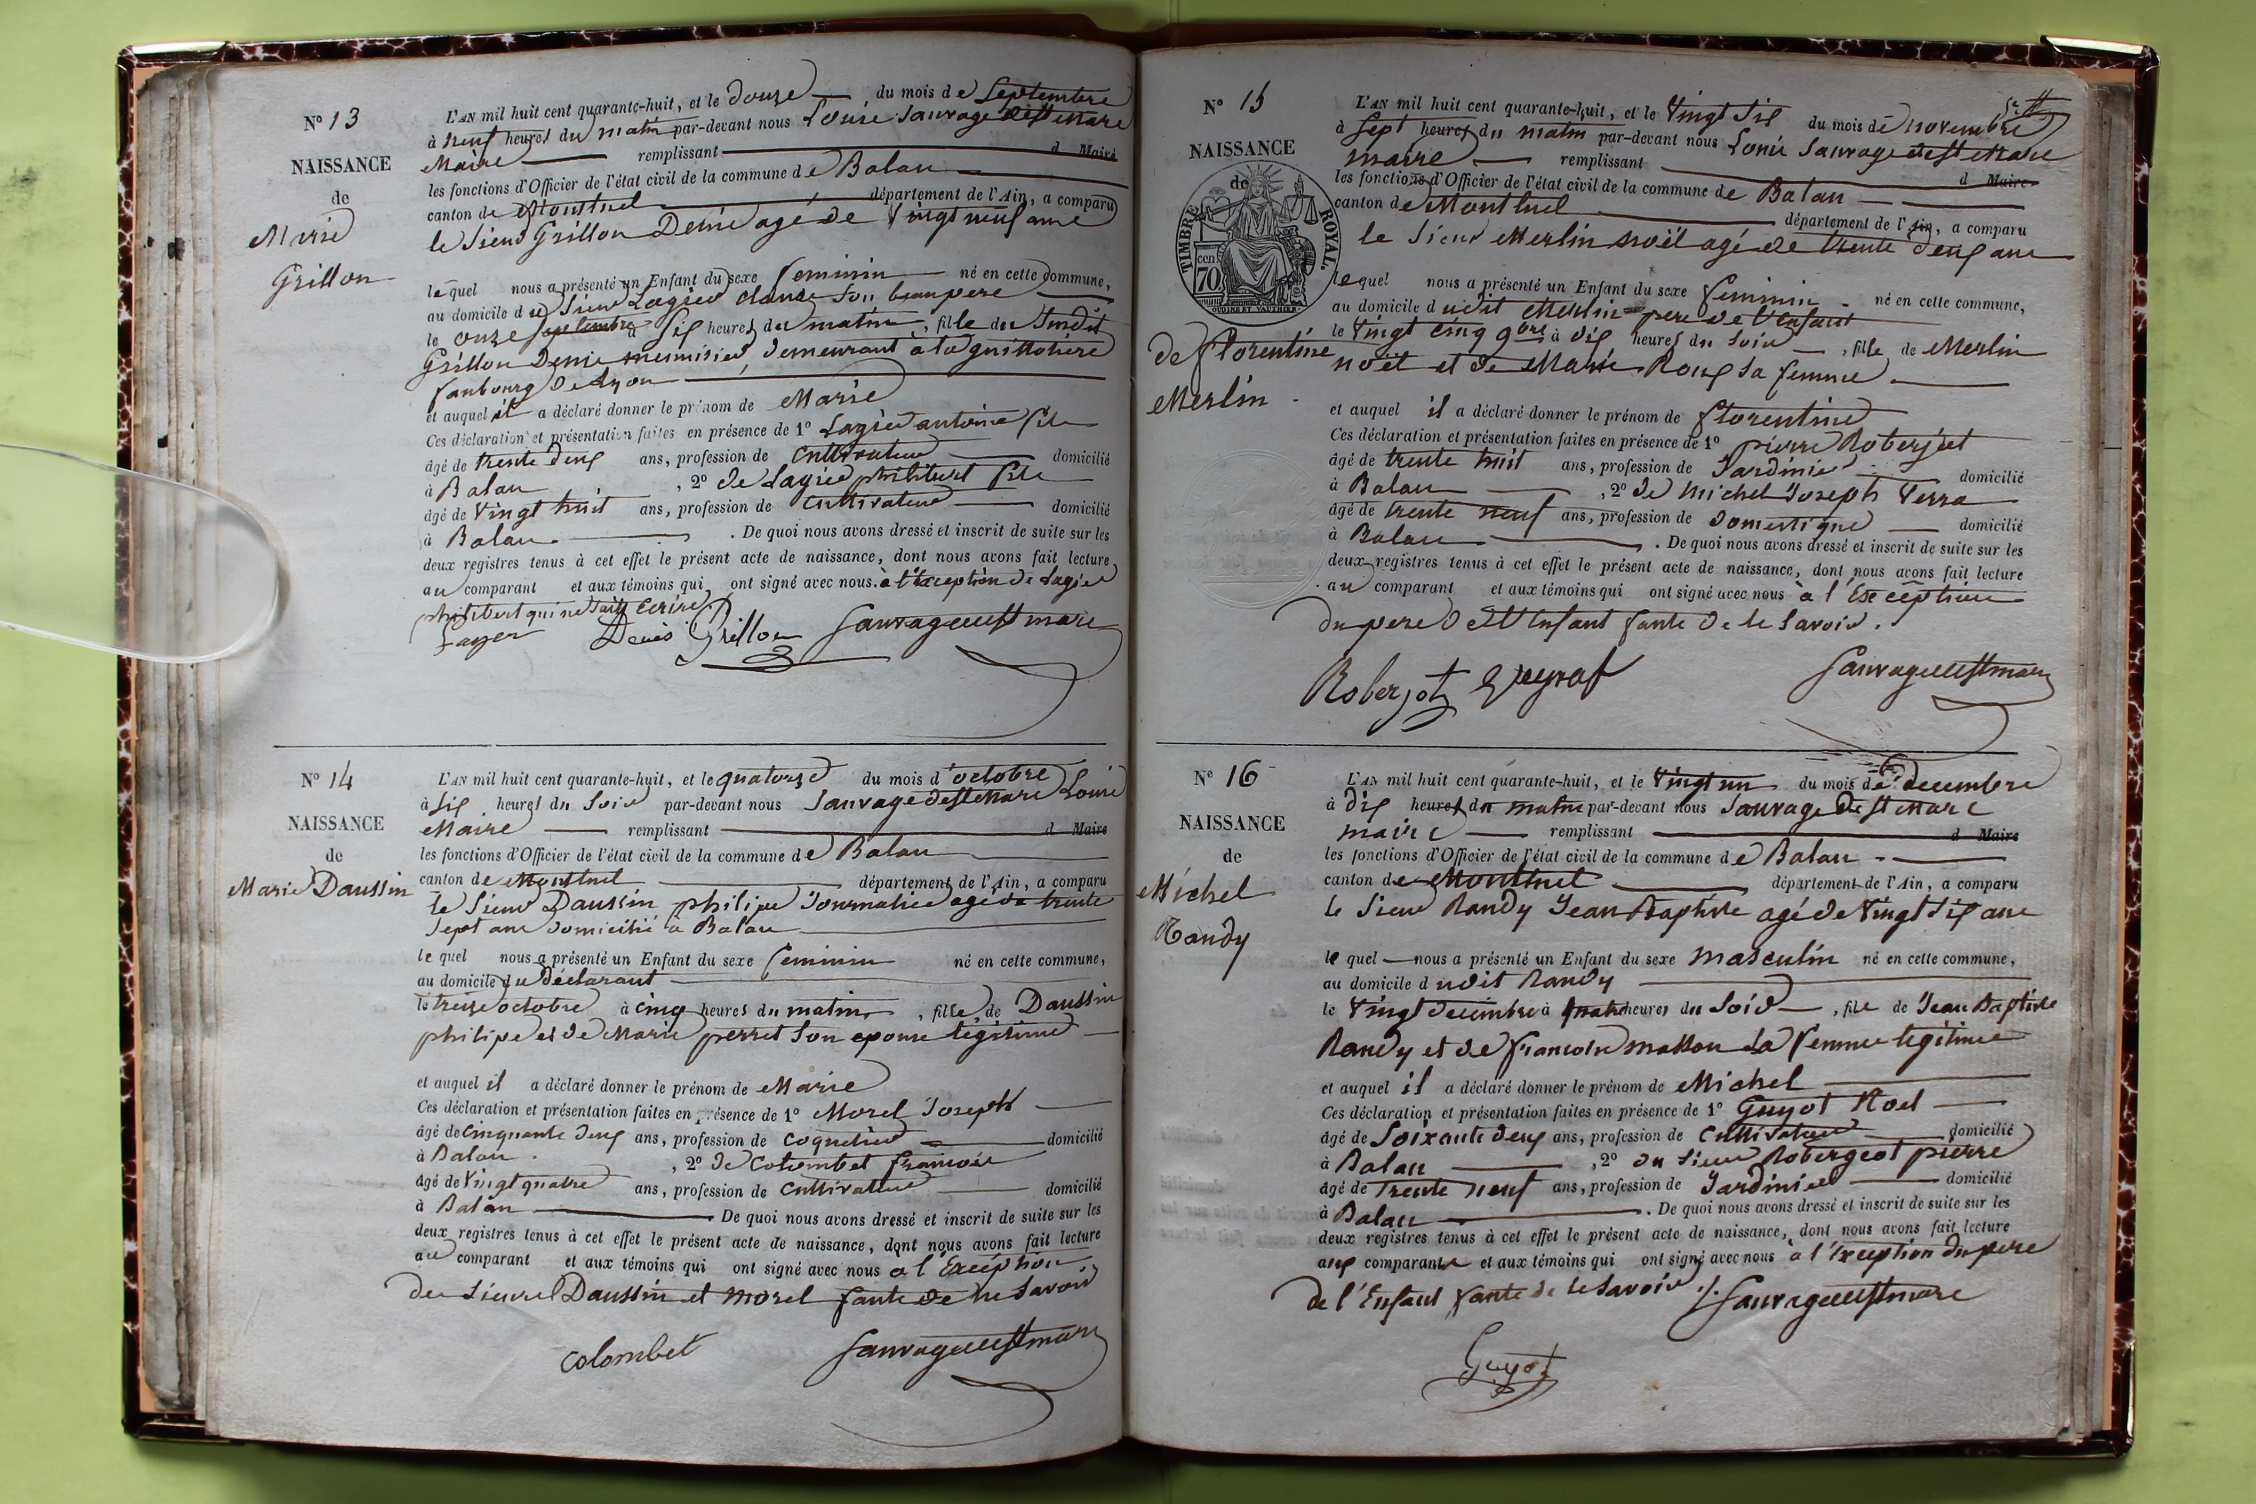 N° 13
NAISSANCE
de
Marie
Grillon
L'AN mil huit cent quarante-huit, et le douze du mois de Septembre
à neuf heures du matin par-devant nous Louis Sauvage de St Mare
Maire remplissant d Maire
les fonctions d'Officier de l'état civil de la commune de Balan
canton de Montluel département de l'Ain, a comparu
le Sieur Grillon Denis agé de vingt neuf ans
lequel nous a présenté un Enfant du sexe feminin né en cette commune,
au domicile du Sieur Lagier claude son beau pere
le onze Septembre à Six heures du matin, fille du Susdit
Grillon Denis menuisier, demeurant à la guillotière
faubourg de Lyon
et auquel il a déclaré donner le prénom de Marie
Ces déclaration et présentation faites en présence de 1° Lagier antoine fils
âgé de trente deux ans, profession de cultivateur domicilié
à Balan, 2° de Lagier philibert fils
âgé de vingt huit ans, profession de cultivateur domicilié
à Balan. De quoi nous avons dressé et inscrit de suite sur les
deux registres tenus à cet effet le présent acte de naissance, dont nous avons fait lecture
au comparant et aux témoins qui ont signé avec nous. à l'exception de Lagier
philibert qui ne sait Ecrire
Denis Grillon
N° 14
NAISSANCE
de
Marie Daussin
L'AN mil huit cent quarante-huit, et le quatorze du mois d'octobre
à Six heures du Soir par-devant nous Sauvage de St Mare Louis
Maire remplissant d Maire
les fonctions d'Officier de l'état civil de la commune de Balan
canton de Montluel département de l'Ain, a comparu
le Sieur Daussin philipe Journalier agé de trente
Sept ans domicilié a Balan
lequel nous a présenté un Enfant du sexe feminin né en cette commune,
au domicile du Déclarant
le treize octobre à cinq heures du matin, fille de Daussin
philipe et de Marie perret Son epouse legitime
et auquel il a déclaré donner le prénom de Marie
Ces déclaration et présentation faites en présence de 1° Morel Joseph
âgé de cinquante deux ans, profession de coquetier domicilié
à Balan, 2° de Colombet francois
âgé de vingt quatre ans, profession de cultivateur domicilié
à Balan De quoi nous avons dressé et inscrit de suite sur les
deux registres tenus à cet effet le présent acte de naissance, dont nous avons fait lecture
au comparant et aux témoins qui ont signé avec nous a l'Exception
des Sieurs Daussin et Morel faute de ne Savoir
colombet
N° 15
NAISSANCE
de
TIMBRE ROYAL
70 cen
de florentine
Merlin
L'AN mil huit cent quarante-huit, et le vingt Six du mois de novembre
à Sept heures du matin par-devant nous Louis Sauvage de St Mare
maire remplissant d Maire
les fonctions d'Officier de l'état civil de la commune de Balan
canton de Montluel département de l'Ain, a comparu
le Sieur Merlin noël agé de trente deux ans
lequel nous a présenté un Enfant du sexe feminin né en cette commune,
au domicile dudit Merlin pere de l'Enfant
le vingt cinq 9bre à dix heures du Soir, fille de Merlin
noël et de Marie Roux sa femme
et auquel il a déclaré donner le prénom de florentine
Ces déclaration et présentation faites en présence de 1° pierre Roberjeot
âgé de trente huit ans, profession de Jardinier domicilié
à Balan, 2° de Michel Joseph
âgé de trente neuf ans, profession de domestique domicilié
à Balan. De quoi nous avons dressé et inscrit de suite sur les
deux registres tenus à cet effet le présent acte de naissance, dont nous avons fait lecture
au comparant et aux témoins qui ont signé avec nous à l'Exception
du pere de l'Enfant faute de le Savoir.
Roberjot
N° 16
NAISSANCE
de
Michel
Randy
L'AN mil huit cent quarante-huit, et le vingt un du mois de decembre
à dix heures du matin par-devant nous Sauvage de St Mare
maire remplissant d Maire
les fonctions d'Officier de l'état civil de la commune de Balan
canton de Montluel département de l'Ain, a comparu
le Sieur Randy Jean Baptiste agé de vingt Six ans
lequel nous a présenté un Enfant du sexe masculin né en cette commune,
au domicile dudit Randy
le vingt decembre à quatre heures du Soir, fils de Jean Baptiste
Randy et de francoise La femme legitime
et auquel il a déclaré donner le prénom de Michel
Ces déclaration et présentation faites en présence de 1° Guyot Noel
âgé de Soixante deux ans, profession de cultivateur domicilié
à Balan, 2° du Sieur Robergeot pierre
âgé de trente neuf ans, profession de Jardinier domicilié
à Balan. De quoi nous avons dressé et inscrit de suite sur les
deux registres tenus à cet effet le présent acte de naissance, dont nous avons fait lecture
aux comparants et aux témoins qui ont signé avec nous à l'exception du pere
de l'Enfant faute de le Savoir
Guyot